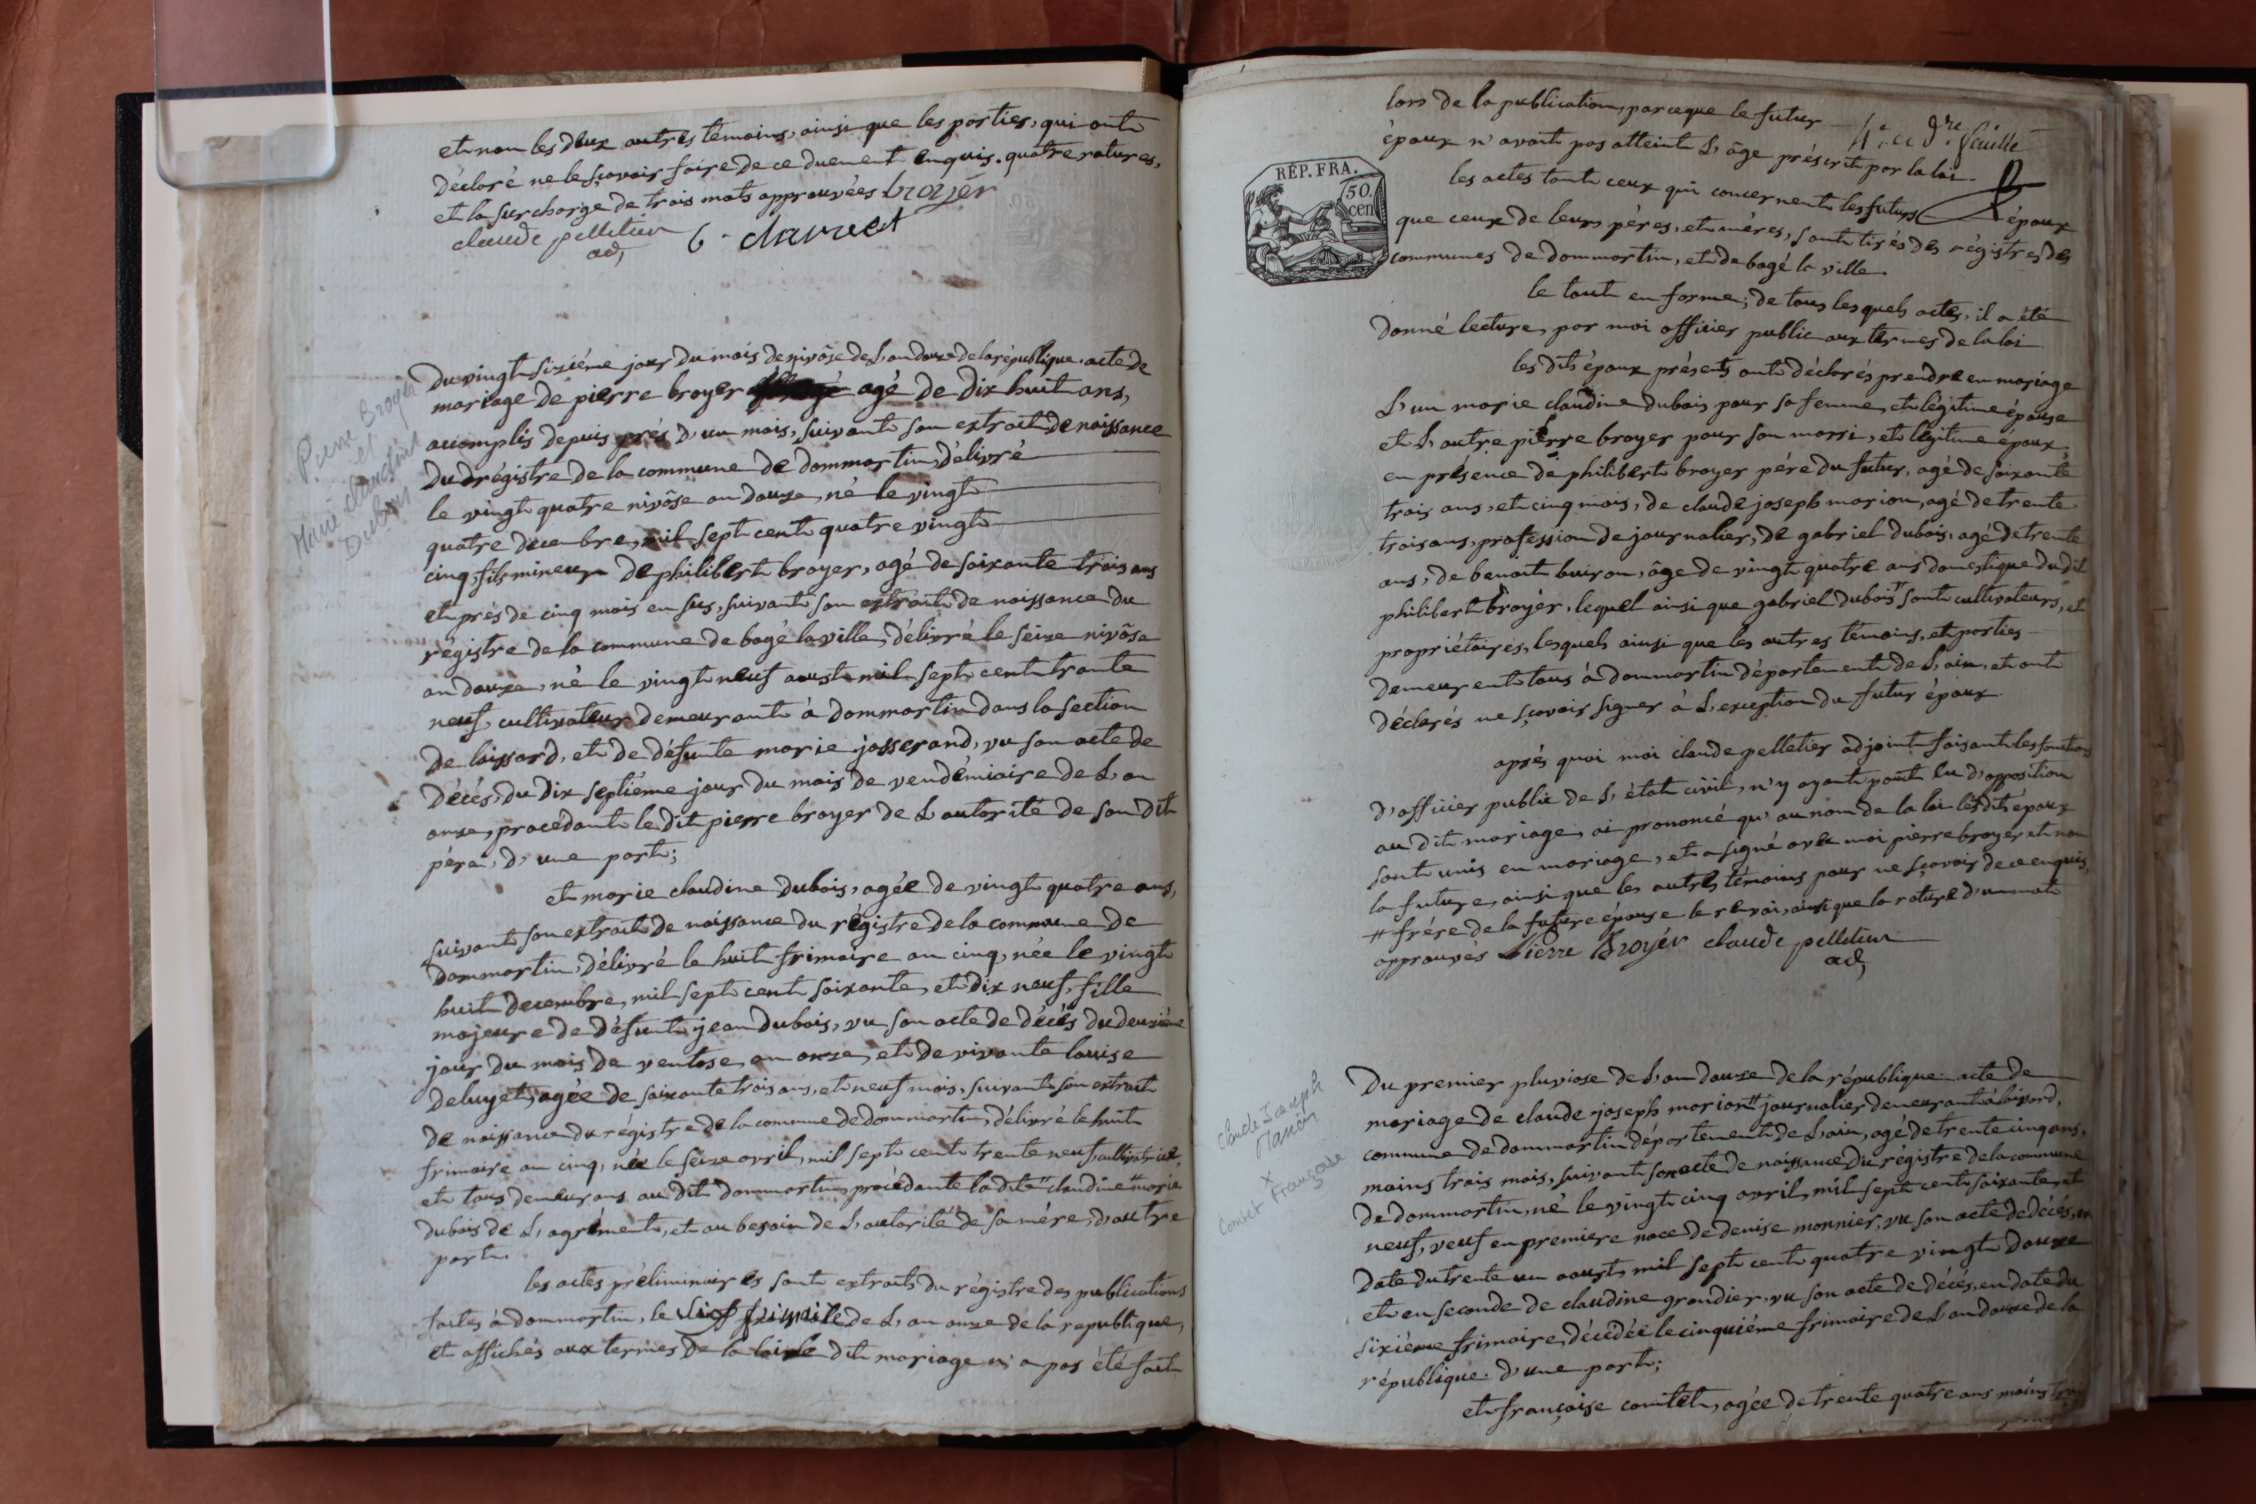 et non les deux autres temoins, ainsi que les parties, qui ont
déclaré ne le sçavoir faire de ce duement enquis. quatre ratures,
et la surcharge de trois mots approuvées broyer
claude pelletier
adj
du vingt sixiéme jour du mois de nivôse de l'an douze de la république. acte de
mariage de pierre broyer agé de dix huit ans,
accomplis depuis prés d'un mois, suivant son extrait de naissance
du régistre de la commune de dommartin, délivré
le vingt quatre nivôse an douze, né le vingt
quatre decembre, mil sept cent quatre vingt
cinq, fils mineur de philibert broyer, agé de soixante trois ans
et prés de cinq mois en sus, suivant son extrait de naissance du
régistre de la commune de bagé la ville, délivré le seize nivôse
an douze, né le vingt neuf aoust mil sept cent trante
neuf, cultivateur demeurant à dommartin dans la section
de loissard, et de défunte marie josserand, vu son acte de
décés, du dix septiéme jour du mois de vendémiaire de l'an
onze, procedant le dit pierre broyer de l'autorité de son dit
pére, d'une part;
et marie claudine dubois, agée de vingt quatre ans,
suivant son extrait de naissance du régistre de la commune de
dommartin, délivré le huit frimaire an cinq, née le vingt
huit decembre, mil sept cent soixante, et dix neuf, fille
majeure de défunt jean dubois, vu son acte de décés du deuxième
jour du mois de ventose, an onze, et de vivante louise
deluyet, agée de soixante trois ans, et neuf mois, suivant son extrait
de naissance du régistre de la commune de dommartin, délivré le huit
frimaire an cinq, née le seize avril, mil sept cent trente neuf, cultivatrice,
et tous demeurans au dit dommartin, procédante la dite claudine marie
dubois de l'agrément, et au besoin de l'autorité de sa mére, d'autre
part.
les actes préliminaires sont extraits du régistre des publications
faites à dommartin, le frimaire de l'an onze de la republique,
et affichés aux termes de la loi le dit mariage n'a pas été fait
Pierre Broyer
et
Marie claudine
Dubois
feuille
lors de la publication, parceque le futur
époux n'avait pas atteint l'âge préscrit par la loi.
RÉP. FRA.
50.
cen
les actes tant ceux qui concernent les futurs époux
que ceux de leurs péres, et méres, sont tirés des régistres des
communes de dommartin, et de bagé la ville.
le tout en forme; de tous lesquels actes, il a été
donné lecture, par moi officier public aux termes de la loi
les dits époux présents ont déclarés prendre en mariage
l'un marie claudine dubois pour sa femme, et légitime épouse
et l'autre pierre broyer pour son marri, et légitime époux,
en présence de philibert broyer pére du futur, agé de soixante
trois ans, et cinq mois, de claude joseph marion, agé de trente
trois ans, profession de journalier, de gabriel dubois, agé de trente
ans, de benoit buiron, âge de vingt quatre ans domestique du dit
philibert broyér, lequel ainsi que gabriel dubois # sont cultivateurs, et
propriétaires, lesquels ainsi que les autres témoins, et parties
demeurent tous à dommartin département de l'ain, et ont
déclarés ne sçavoir signer à l'exception du futur époux.
aprés quoi moi claude pelletier adjoint faisant les fonctions
d'officier public de l'état civil, n'y ayant point eu d'opposition
au dit mariage, ai prononcé qu'au nom de la loi les dits époux
sont unis en mariage, et a signé avec moi pierre broyer et non
la future, ainsi que les autres témoins pour ne sçavoir de ce enquis,
# frére de la future épouse le renvoi, ainsi que la rature d'un mot
approuvés Pierre Broyér claude pelletier
adj
du premier pluviose de l'an douze de la république. acte de
mariage de claude joseph marion # journalier demeurant à loissard,
commune de dommartin département de l'ain, agé de trente cinq ans,
moins trois mois, suivant son acte de naissance du régistre de la commune
de dommartin, né le vingt cinq avril, mil sept cent soixante, et
neuf, veuf en premiere noce de denise monnier, vu son acte de décés, en
date du trente un aoust, mil sept cent quatre vingt douze
et en seconde de claudine grandier, vu son acte de décés, en date du
sixiéme frimaire, décédée le cinquiéme frimaire de l'an douze de la
république. d'une part;
et françoise comtet, agée de trente quatre ans moins trois
Claude Joseph
Marion
x
Comtet Françoise